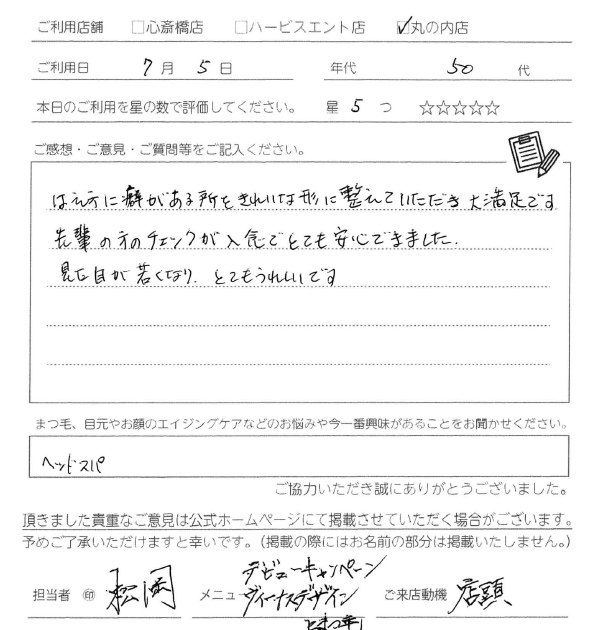 ご利用店舗 □心斎橋店 □ハービスエント店 ☑丸の内店
ご利用日 7月 5日 年代 50代
本日のご利用を星の数で評価してください。 星 5 つ ☆☆☆☆☆
ご感想・ご意見・ご質問等をご記入ください。
はえ方に癖がある所をきれいな形に整えていただき大満足です
先輩の方のチェックが入念でとても安心できました.
見た目が若くなり、とてもうれしいです
まつ毛、目元やお顔のエイジングケアなどのお悩みや今一番興味があることをお聞かせください。
ヘッドスパ
ご協力いただき誠にありがとうございました。
頂きました貴重なご意見は公式ホームページにて掲載させていただく場合がございます。
予めご了承いただけますと幸いです。（掲載の際にはお名前の部分は掲載いたしません。）
デビューキャンペーン
担当者 ㊞ 松岡 メニュー ヴィーナスデザイン ご来店動機 店頭